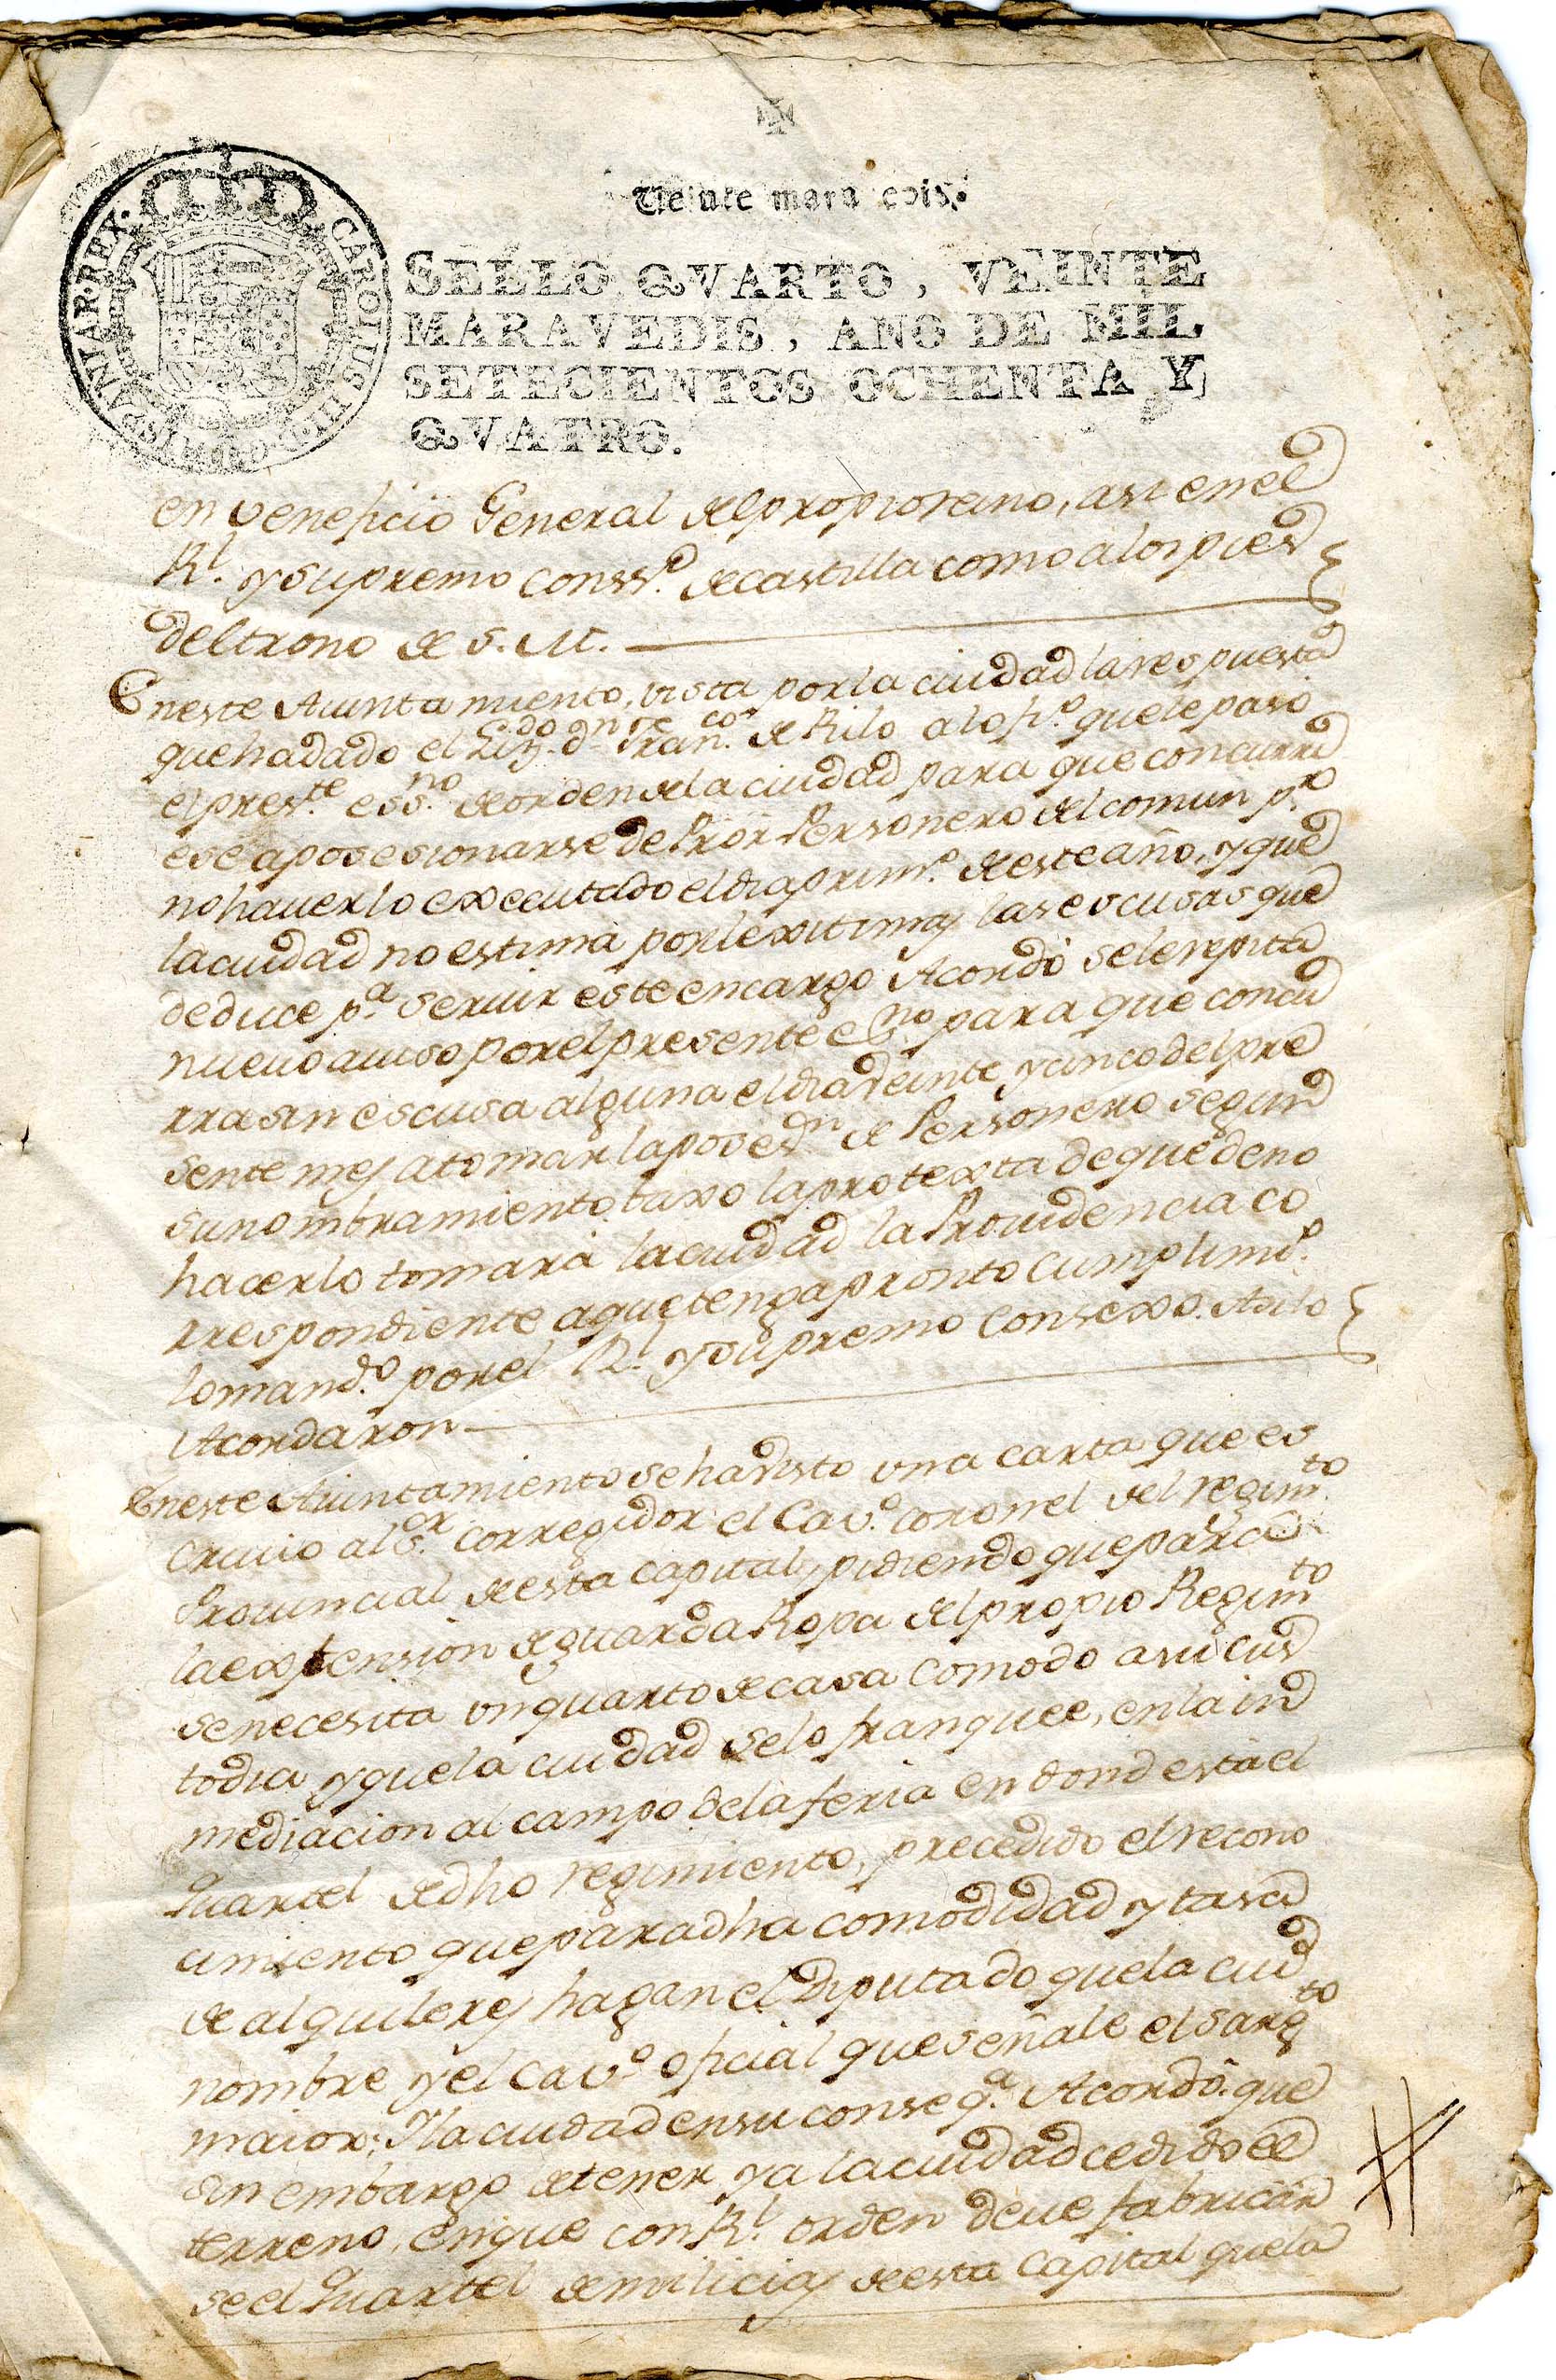 Veinte maravedis.
CAROLUS III D G HISPANIAR REX
SELLO QVARTO, VEINTE
MARAVEDIS, AÑO DE MIL
SETECIENTOS OCHENTA Y
QVATRO.
en veneficio General del propio reino, asi en el
Rl. y Supremo Conss.º de castilla como a los pies
del trono de S. M.
En este Aiuntamiento, vista por la ciudad la respuesta
que ha dado el Liz.do dn Fran.co de Rilo a lo fi.º que le paso
el pres.te ess.no de orden de la ciudad para que concurri
ese a posesionarse de Pror Personero del comun p.r
no hauerlo executado el dia prim.º de este año, y que
la ciudad no estima por lexitimas las escusas que
deduce p.a seruir este encargo Acordó se le repita
nueuo auiso por el presente es.no para que concu
rra sin escusa alguna el dia veinte y cinco del pre
sente mes a tomar la poses.n de Personero segun
su nombramiento baxo la protexta de que de no
hacerlo tomará la ciudad la Prouidencia co
rrespondiente a que tenga pronto cumplimi.º
lo mand.º por el Rl. y Supremo Consexo. Asi lo
Acordaron
En este Aiuntamiento se ha visto una carta que es
criuio al S.or Corregidor el Cav.º coronel del regim.to
Prouincial de esta capital, pidiendo que para
la extension de guarda Ropa del propio Regim.to
se necesita un quarto de casa comodo a su cus
todia y que la ciudad se lo franquee, en la in
mediacion al campo de la feria en dond está el
Quartel de dho regimiento, precedido el recono
cimiento que para dha comodidad y tasa
de alquileres hagan el Diputado que la ciud
nombre y el Cav.º oficial que señale el sarg.to
maior; Y la ciudad en su conseq.a Acordó que
sin embargo de tener ya la ciudad cedido el
terreno, en que con Rl. orden deue fabricar
se el Quartel de milicias de esta Capital que la